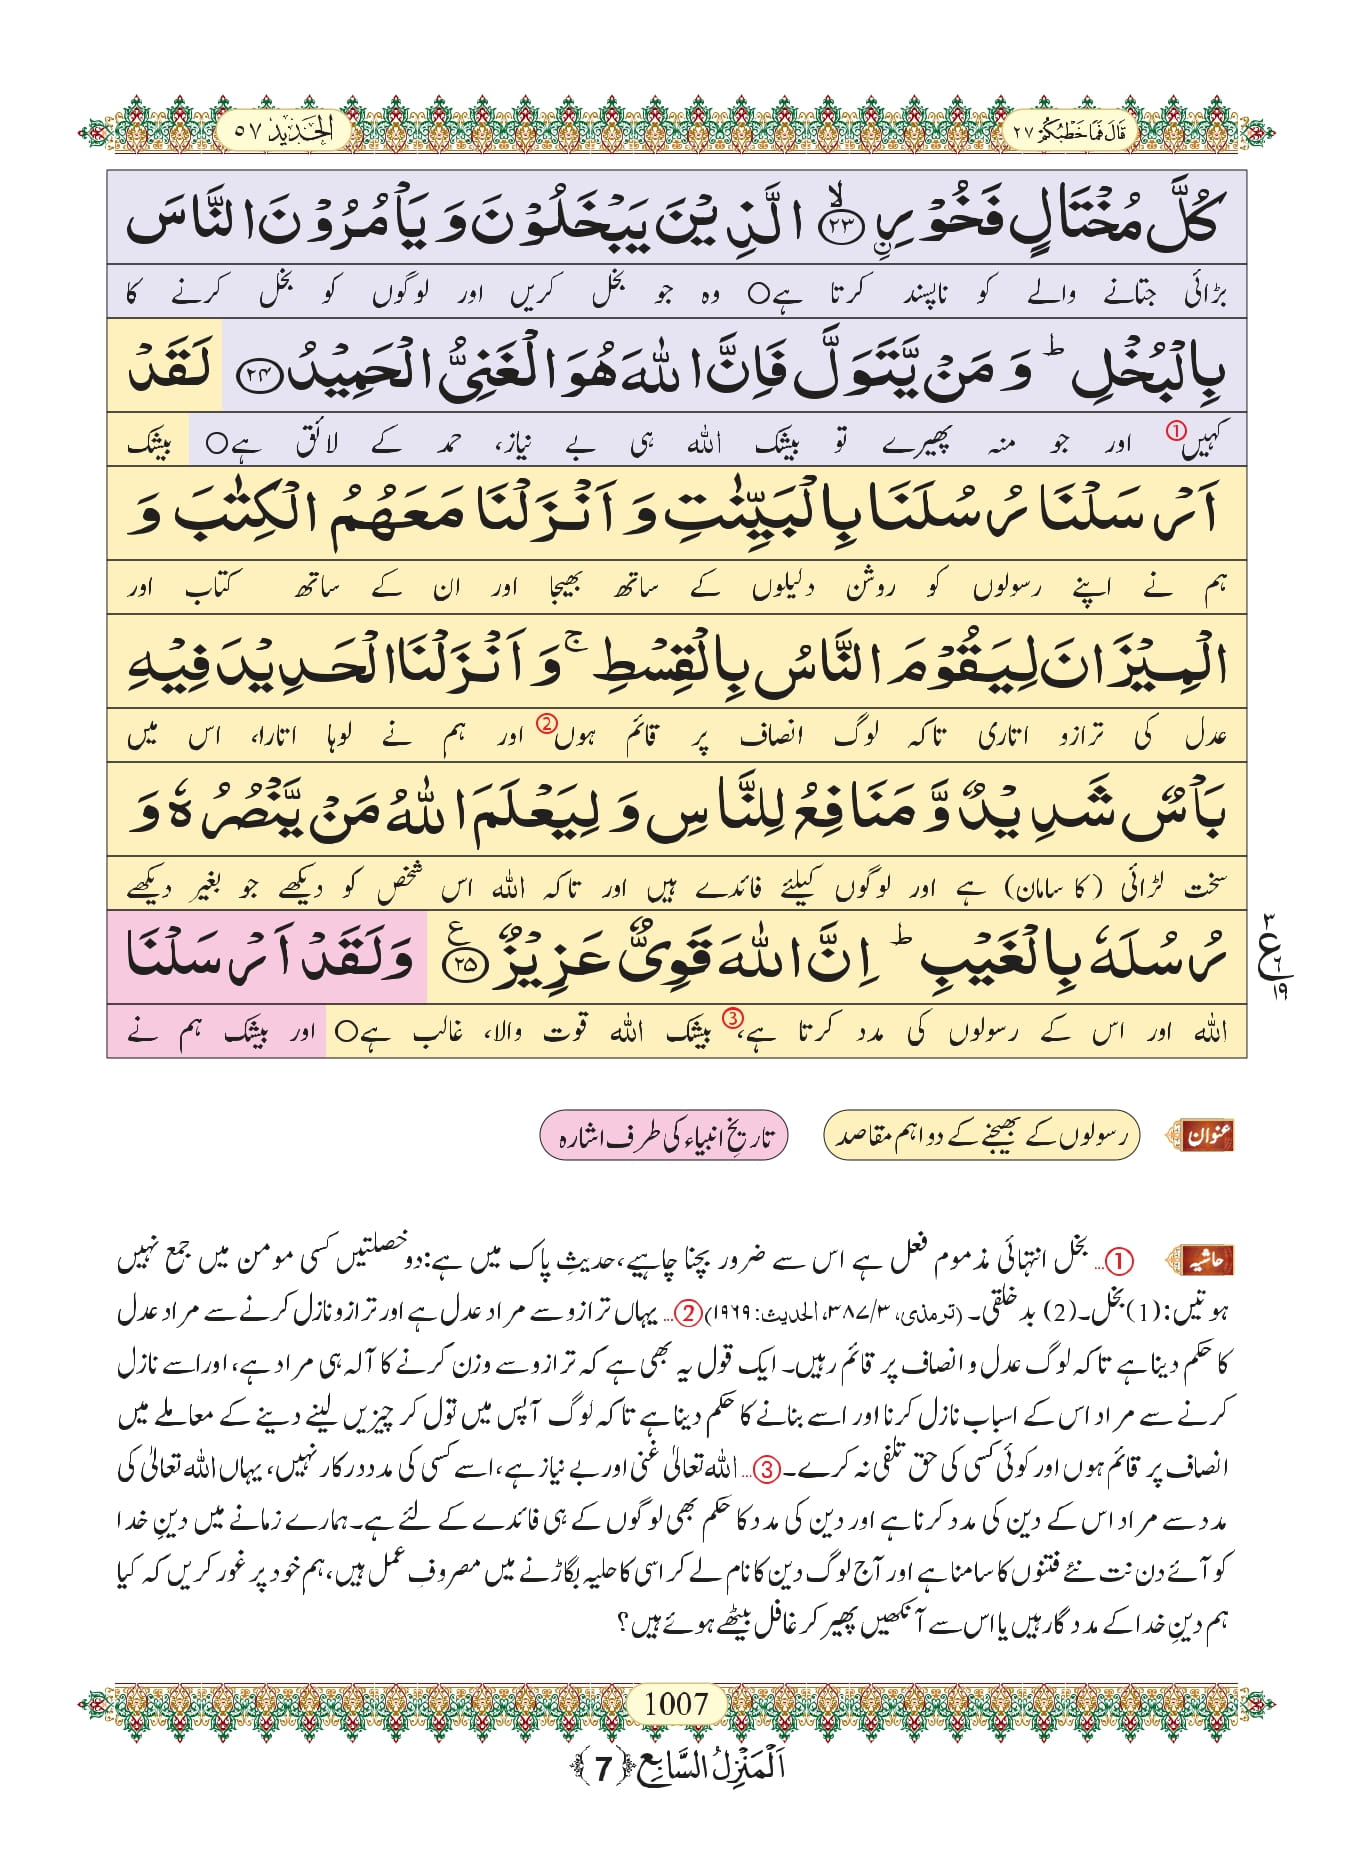 قَالَ فَمَا خَطْبُكُمْ ٢٧
الحَدِيد ٥٧
كُلَّ مُخْتَالٍ فَخُوْرِ ﹰۙ﴿۲۳﴾ الَّذِیْنَ یَبْخَلُوْنَ وَ یَاْمُرُوْنَ النَّاسَ
بڑائی جتانے والے کو ناپسند کرتا ہے○ وہ جو بخل کریں اور لوگوں کو بخل کرنے کا
بِالْبُخْلِؕ وَ مَنْ یَّتَوَلَّ فَاِنَّ اللّٰهَ هُوَ الْغَنِیُّ الْحَمِیْدُ﴿۲۴﴾ لَقَدْ
کہیں① اور جو منہ پھیرے تو بیشک اللہ ہی بے نیاز، حمد کے لائق ہے○ بیشک
اَرْسَلْنَا رُسُلَنَا بِالْبَیِّنٰتِ وَ اَنْزَلْنَا مَعَهُمُ الْكِتٰبَ وَ
ہم نے اپنے رسولوں کو روشن دلیلوں کے ساتھ بھیجا اور ان کے ساتھ کتاب اور
الْمِیْزَانَ لِیَقُوْمَ النَّاسُ بِالْقِسْطِۚ وَ اَنْزَلْنَا الْحَدِیْدَ فِیْهِ
عدل کی ترازو اتاری تاکہ لوگ انصاف پر قائم ہوں② اور ہم نے لوہا اتارا، اس میں
بَاْسٌ شَدِیْدٌ وَّ مَنَافِعُ لِلنَّاسِ وَ لِیَعْلَمَ اللّٰهُ مَنْ یَّنْصُرُهٗ وَ
سخت لڑائی (کا سامان) ہے اور لوگوں کیلئے فائدے ہیں اور تاکہ اللہ اس شخص کو دیکھے جو بغیر دیکھے
رُسُلَهٗ بِالْغَیْبِؕ اِنَّ اللّٰهَ قَوِیٌّ عَزِیْزٌ﴿۲۵﴾ع وَ لَقَدْ اَرْسَلْنَا
٣ ع ٦ ١٩
اللہ اور اس کے رسولوں کی مدد کرتا ہے،③ بیشک اللہ قوت والا، غالب ہے○ اور بیشک ہم نے
عنوان رسولوں کے بھیجنے کے دو اہم مقاصد تاریخِ انبیاء کی طرف اشارہ
حاشیہ ①... بخل انتہائی مذموم فعل ہے اس سے ضرور بچنا چاہیے،حدیثِ پاک میں ہے:دوخصلتیں کسی مومن میں جمع نہیں
ہوتیں:(1)بخل۔(2) بدخلقی۔ (ترمذی، ۳/۳۸۷، الحدیث: ۱۹۶۹) ②... یہاں ترازو سے مراد عدل ہے اور ترازو نازل کرنے سے مراد عدل
کا حکم دینا ہے تاکہ لوگ عدل و انصاف پر قائم رہیں۔ ایک قول یہ بھی ہے کہ ترازو سے وزن کرنے کا آلہ ہی مراد ہے، اور اسے نازل
کرنے سے مراد اس کے اسباب نازل کرنا اور اسے بنانے کا حکم دینا ہے تاکہ لوگ آپس میں تول کر چیزیں لینے دینے کے معاملے میں
انصاف پر قائم ہوں اور کوئی کسی کی حق تلفی نہ کرے۔ ③... اللہ تعالیٰ غنی اور بے نیاز ہے،اسے کسی کی مدد درکار نہیں، یہاں اللہ تعالیٰ کی
مدد سے مراد اس کے دین کی مدد کرنا ہے اور دین کی مدد کا حکم بھی لوگوں کے ہی فائدے کے لئے ہے۔ہمارے زمانے میں دینِ خدا
کو آئے دن نت نئے فتنوں کا سامنا ہے اور آج لوگ دین کا نام لے کر اسی کا حلیہ بگاڑنے میں مصروفِ عمل ہیں،ہم خود پر غور کریں کہ کیا
ہم دینِ خدا کے مددگار ہیں یا اس سے آنکھیں پھیر کر غافل بیٹھے ہوئے ہیں؟
1007
اَلْمَنْزِلُ السَّابِع ﴿7﴾